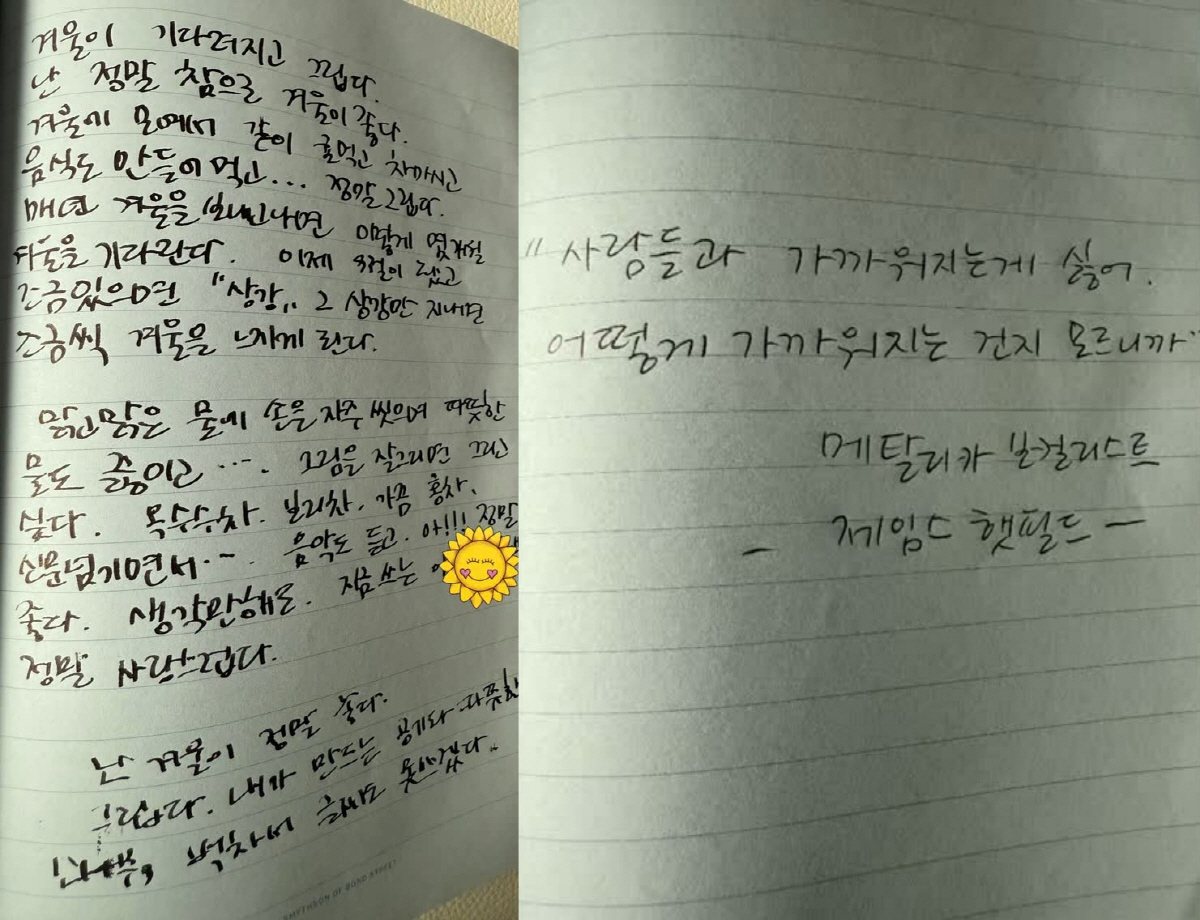 겨울이 기다려지고 그립다.
난 정말 참으로 겨울이 좋다.
겨울에 모여서 같이 귤먹고 차마시고
음식도 만들어먹고... 정말 그립다.
매년 겨울을 보내고나면 이렇게
겨울을 기다린다. 이제 9월이 됐고
조금있으면 "상강" 그 상강만 지내면
조금씩 겨울을 느끼게 된다.
맑고맑은 물에 손을 자주 씻으며 따뜻한
물도 끓이고 .... 그림을 잘그리면 그리고
싶다. 옥수수차. 보리차. 가끔 홍차.
신문넘기면서... 음악도 듣고. 아!!! 정말
좋다. 생각만해도. 지금 쓰는
정말 사랑스럽다.
난 겨울이 정말 좋다.
그립다. 내가 만드는 공기와 따뜻한
벅차서 글씨도 못쓰겠다..
SMYTHSON OF BOND STREET
"사람들과 가까워지는게 싫어.
어떻게 가까워지는 건지 모르니까"
메탈리카 보컬리스트
- 제임스 햇필드 -